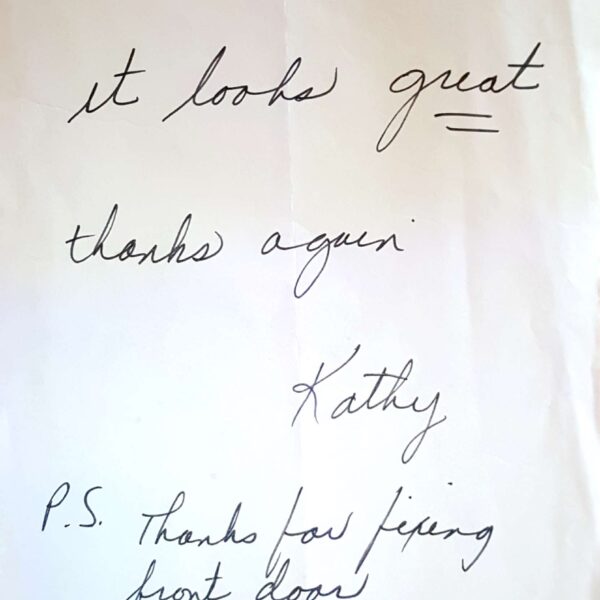 it looks great
thanks again
Kathy
P.S. Thanks for fixing
front door